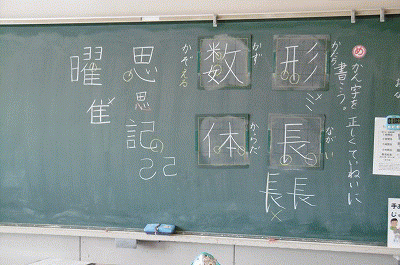 め かん字を正しくていねいに
書こう。
形 かたち
彡
長 ながい
長 長
数 かず
かぞえる
体 からだ
思
思
記
己 己
曜
隹